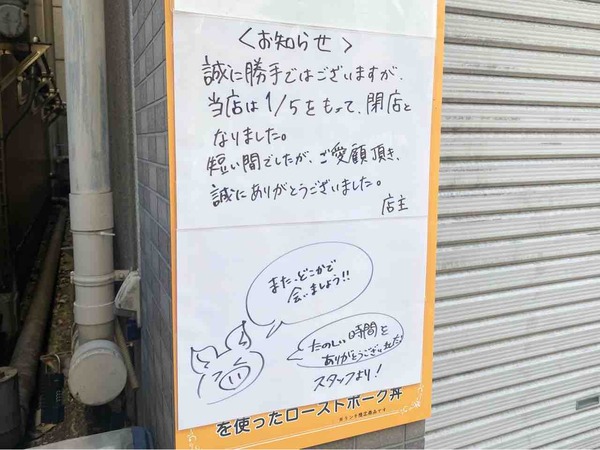 ＜お知らせ＞
誠に勝手ではございますが、
当店は1/5をもって、閉店と
なりました。
短い間でしたが、ご愛顧頂き、
誠にありがとうございました。
店主
また、どこかで
会いましょう!!
たのしい時間を
ありがとうございました!
スタッフより!
を使ったローストポーク丼